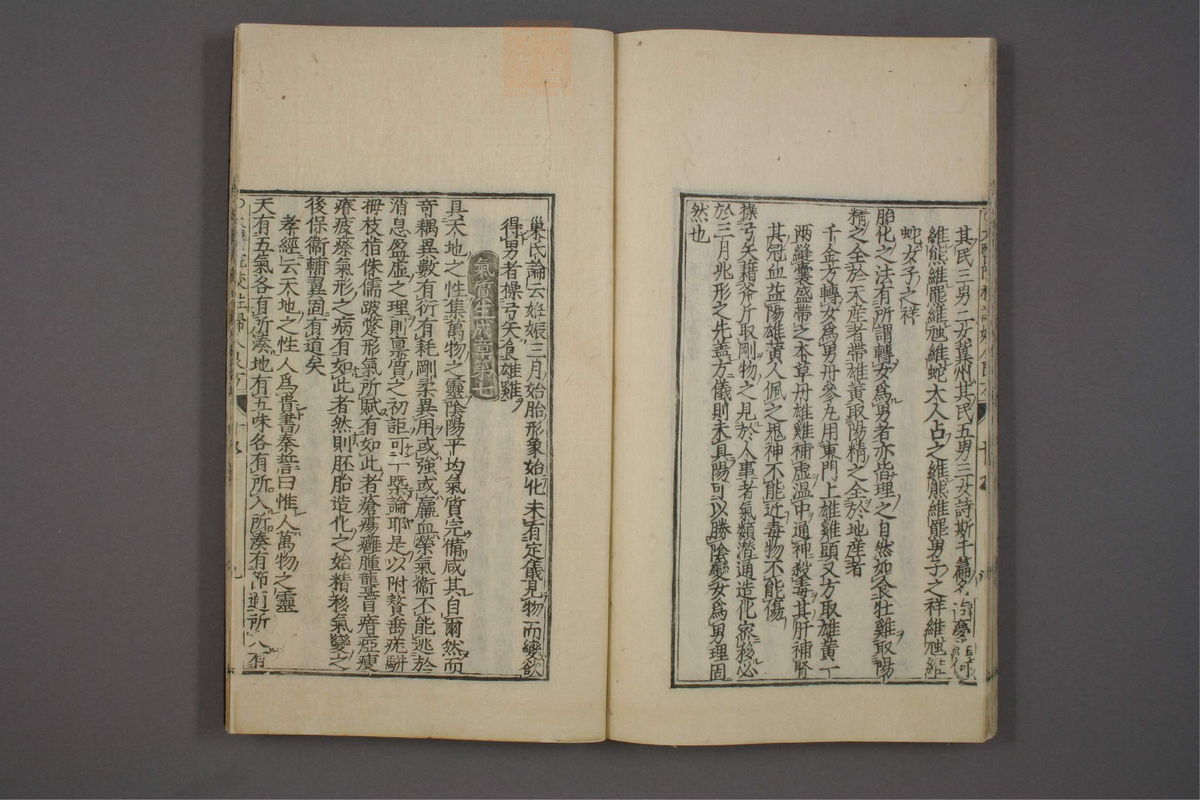 其民三男二女冀州其民五男三女詩斯干篇
維熊維羆維虺維蛇大人占之維熊維羆男子之祥維虺維
蛇女子之祥
胎化之法有所謂轉女爲男者亦皆理之自然如食牡雞取陽
精之全於天産者帶雄黃取陽精之全於地産者
千金方轉女爲男丹參丸用東門上雄雞頭又方取雄黃一
兩縫囊盛帶之本草丹雄雞補虚温中通神殺毒其肝補腎
其冠血益陽雄黃人佩之鬼神不能近毒物不能傷
操弓矢藉斧斤取剛物之見於人事者氣類潛通造化密移必
於三月兆形之先蓋方儀則未具陽可以勝陰變女爲男理固
然也
巢氏論云姙娠三月始胎形象始化未有定儀見物而變欲
得男者操弓矢食雄雞
氣質生成章第七
具天地之性集萬物之靈陰陽平均氣質完備咸其自爾然而
奇耦異數有衍有耗剛柔異用或強或羸血榮氣衛不能逃於
消息盈虚之理則稟質之初詎可一槩論耶是以附贅垂疣駢
拇枝指侏儒跛躄形氣所賦有如此者瘡瘍癰腫聾盲瘖瘂瘦
瘠疲瘵氣形之病有如此者然則胚胎造化之始精移氣變之
後保衛輔翼固有道矣
孝經云天地之性人爲貴書泰誓曰惟人萬物之靈
天有五氣各有所湊地有五味各有所入所湊有節適所入有